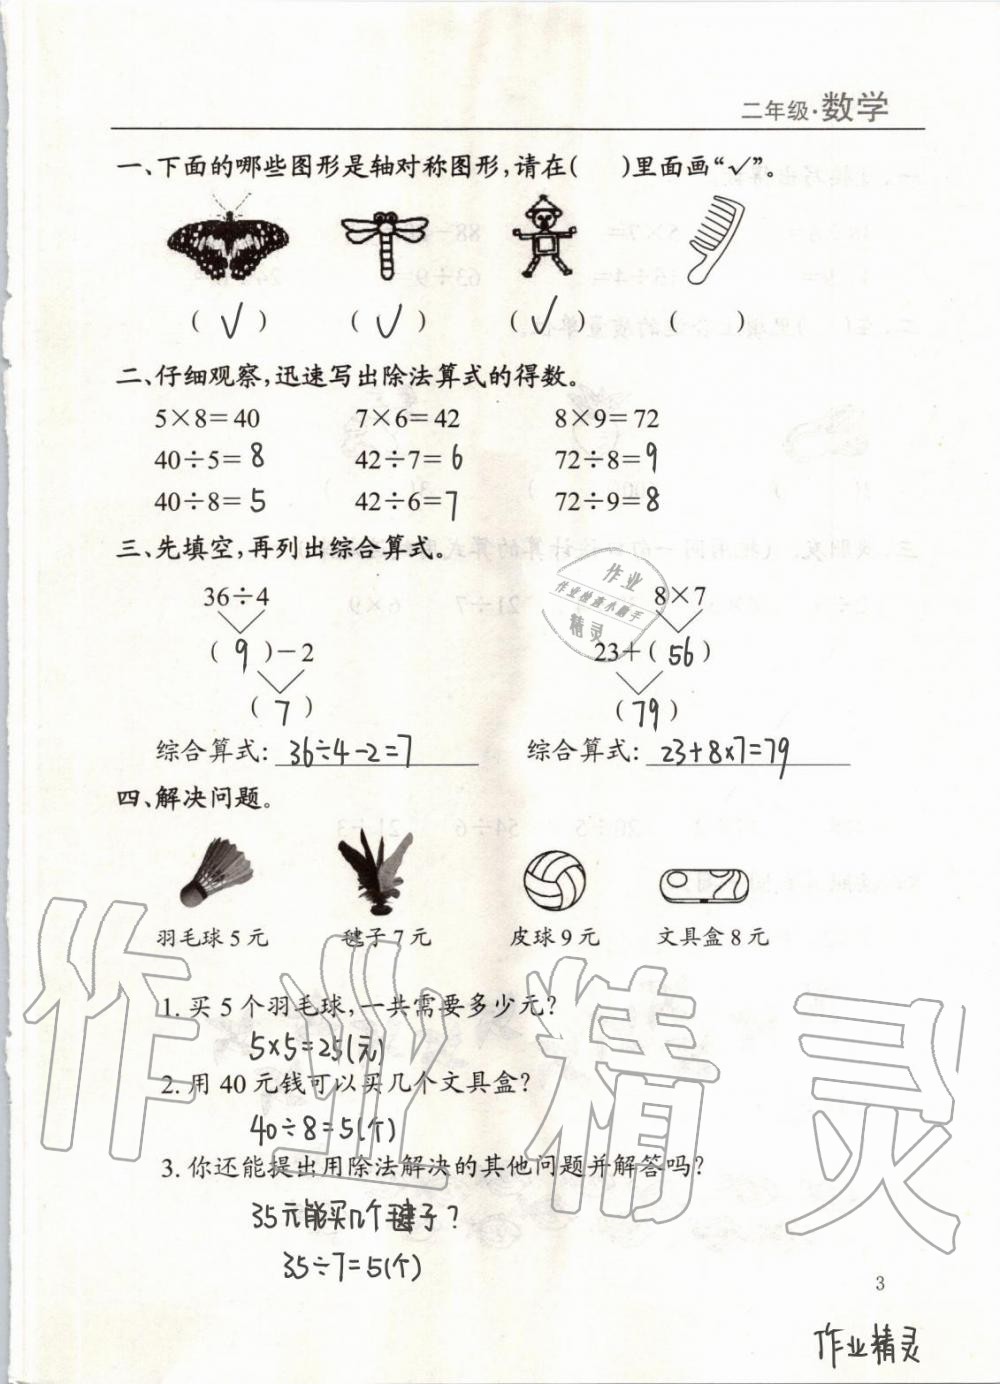 二年级·数学
一、下面的哪些图形是轴对称图形,请在(　　)里面画“√”。
(√) (√) (√) (　　)
二、仔细观察,迅速写出除法算式的得数。
5×8=40 7×6=42 8×9=72
40÷5=8 42÷7=6 72÷8=9
40÷8=5 42÷6=7 72÷9=8
三、先填空,再列出综合算式。
36÷4 8×7
(9)-2 23+(56)
(7) (79)
综合算式: 36÷4-2=7 综合算式: 23+8×7=79
四、解决问题。
羽毛球5元 毽子7元 皮球9元 文具盒8元
1. 买 5 个羽毛球,一共需要多少元?
5×5=25(元)
2. 用 40 元钱可以买几个文具盒?
40÷8=5(个)
3. 你还能提出用除法解决的其他问题并解答吗?
35元能买几个毽子?
35÷7=5(个)
3
作业精灵
作业
作业检查小助手
精灵
作业精灵